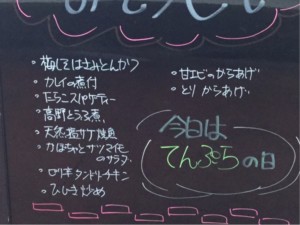 ・梅しそはさみとんかつ
・カレイの煮付
・たらこスパゲティー
・高野とうふ煮
・天然塩サケ焼
・かぼちゃとサツマイモ
のサラダ
タンドリーチキン
・ひじき炒め
・甘エビのからあげ
・とりからあげ
今日は
てんぷらの日